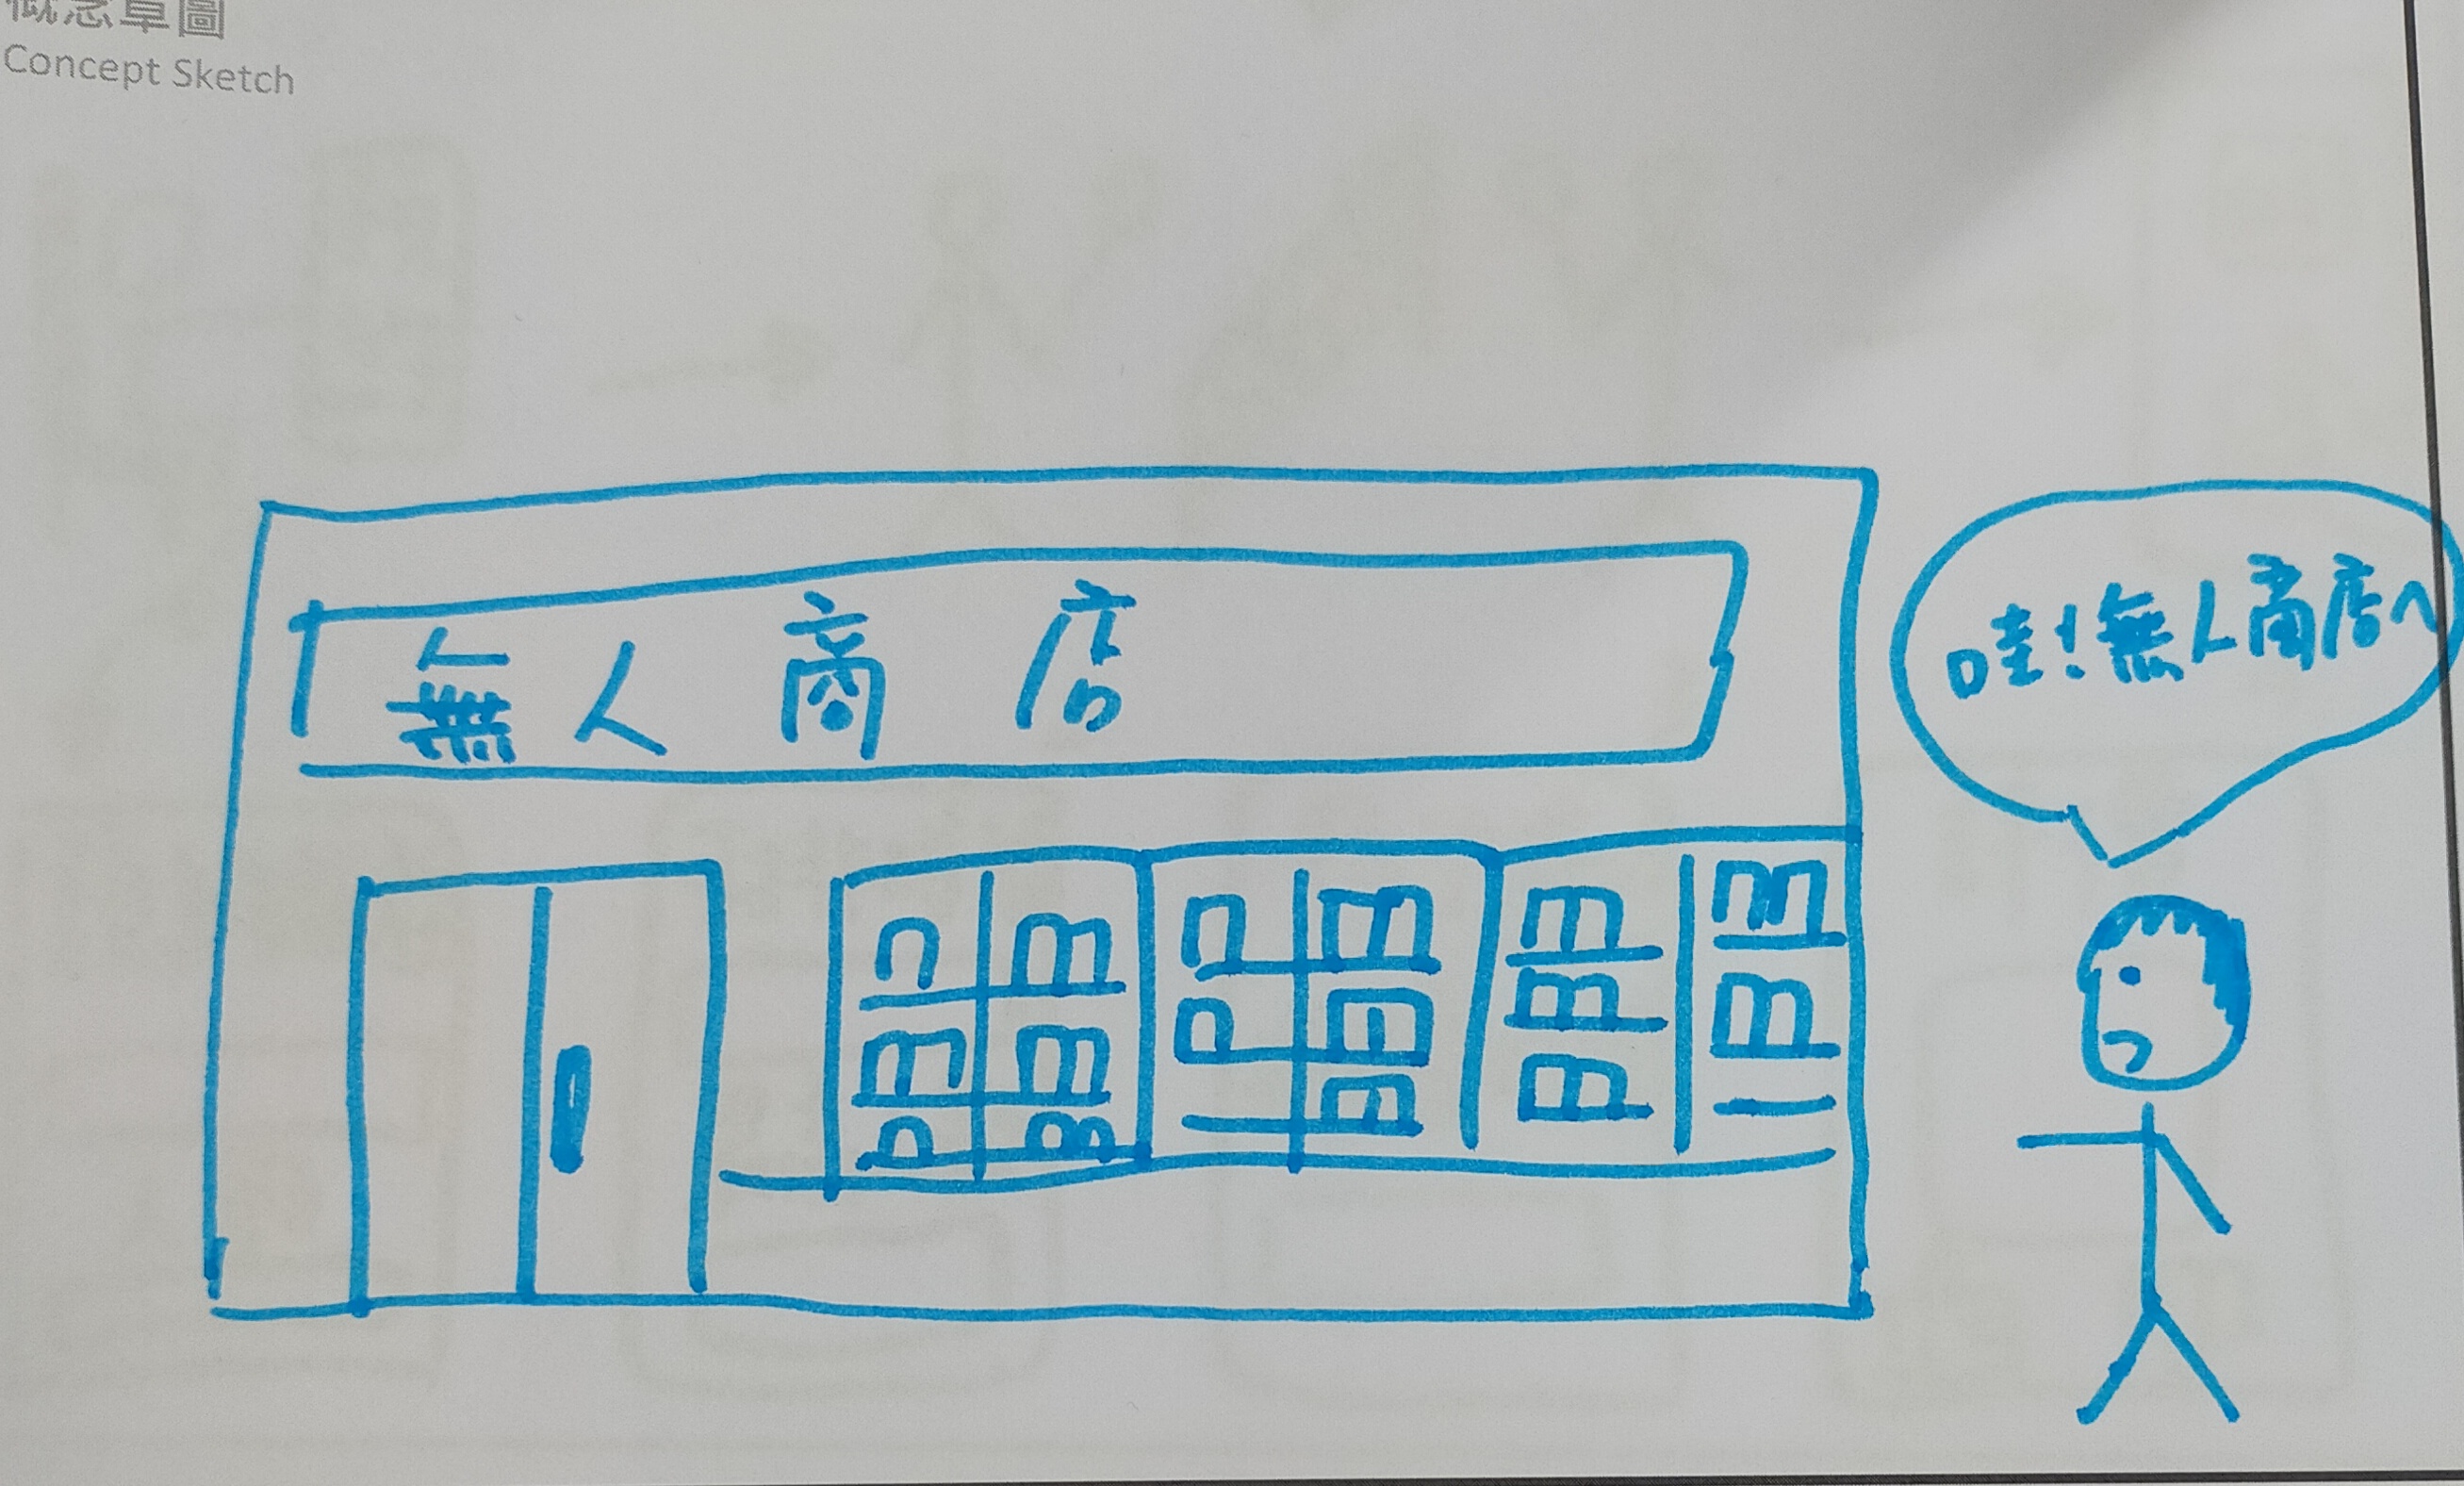 概念草圖
Concept Sketch
無人商店
哇!無人商店ㄟ